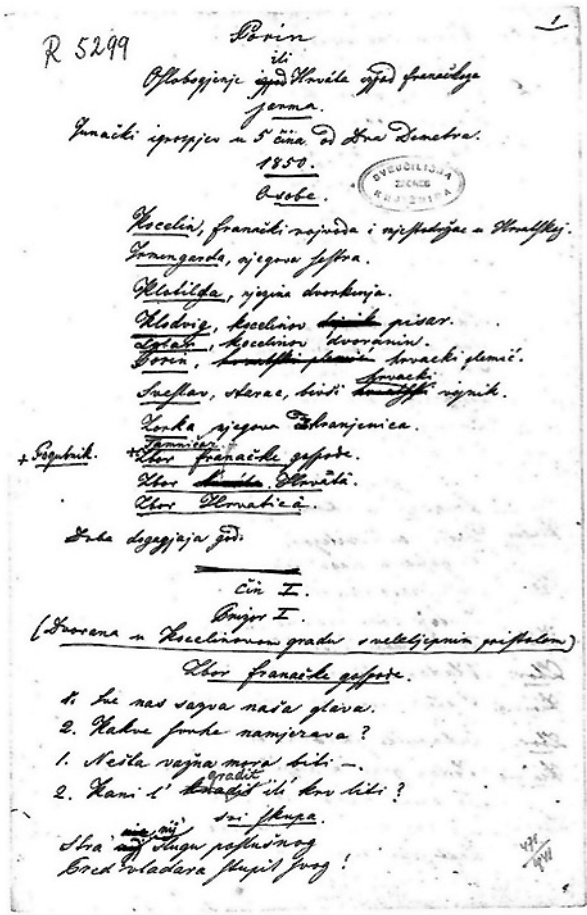 R 5299
1
Porin
ili
Oslobogjenje Hrvátá izpod franačkoga
jarma.
Junački igrospjev u 5 čina od Dra Demetra.
1850.
SVEUČILIŠNA
ZAGREB
KNJIŽNICA
Osobe.
Kocelin, franački vojvoda i mjestodržac u Hrvatskoj.
Irmengarda, njegova sestra.
Klotilda, njezina dvorkinja.
Klodvig, kocelinov pisar.
kocelinov dvoranin.
Porin, hrvacki plemić.
hrvacki
Sveslav, starac, bivši vojnik.
Zorka njegova hranjenica.
Tamničar
+ Pogubnik. + Zbor franačke gospode.
Zbor Hrvátá.
Zbor Hrvaticá.
Doba dogagjaja god.
Čin I.
Prizor I.
(Dvorana u Kocelinovom gradu s veleljepnim pristoljem)
Zbor franačke gospode.
1. Sve nas sazva naša glava.
2. Kakve svrhe namjerava?
1. Nešta važna mora biti –.
gradit
2. Kani l' ili krv liti?
svi skupa.
nij
slugu poslušnog
Pred vladara stupit svog!